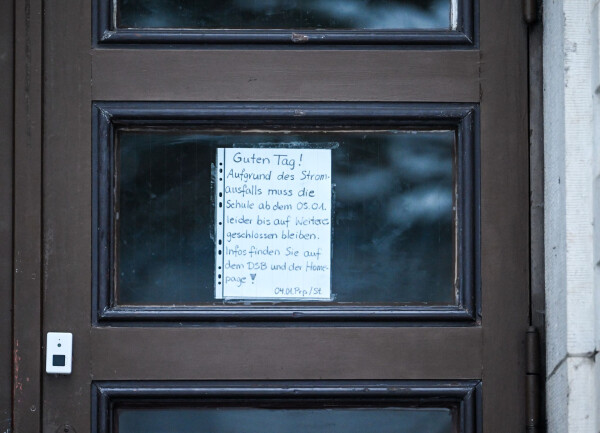 Guten Tag!
Aufgrund des Strom-
ausfalls muss die
Schule ab dem 05.01.
leider bis auf Weiteres
geschlossen bleiben.
Infos finden Sie auf
dem DSB und der Home-
page!
04.01. Prp./St.